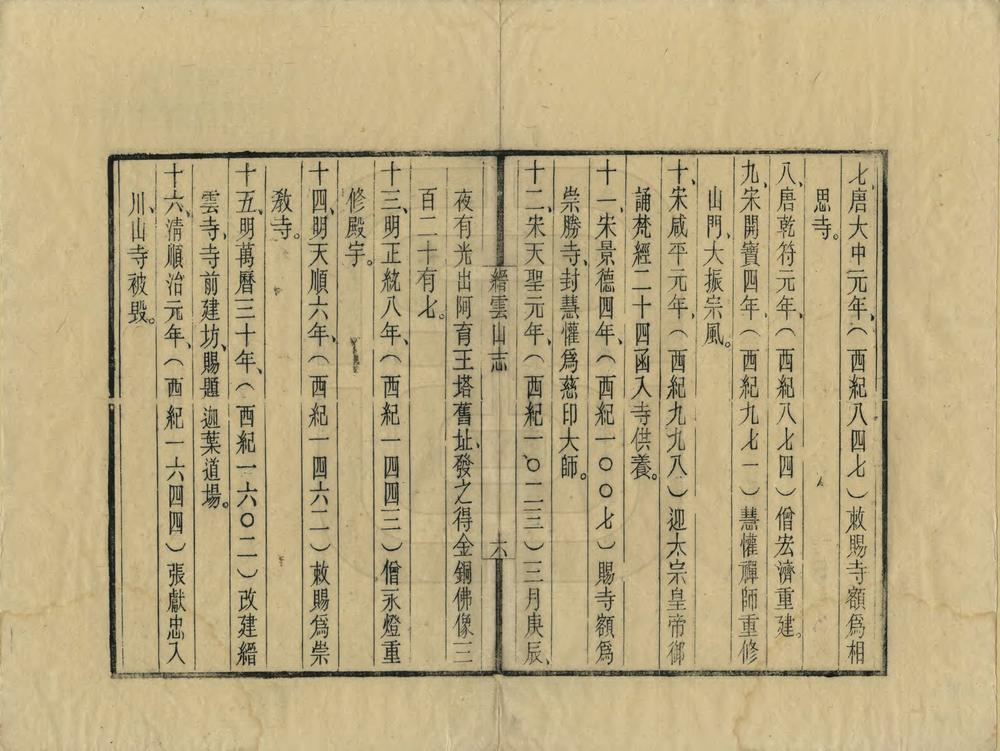 七、唐大中元年、(西紀八四七)敕賜寺額爲相
思寺。
八、唐乾符元年、(西紀八七四)僧宏濟重建。
九、宋開寶四年、(西紀九七一)慧懽禪師重修
山門、大振宗風。
十、宋咸平元年、(西紀九九八)迎太宗皇帝御
誦梵經二十四函入寺供養。
十一、宋景德四年、(西紀一〇〇七)賜寺額爲
崇勝寺、封慧懽爲慈印大師。
十二、宋天聖元年、(西紀一〇二三)三月庚辰、
縉雲山志 六
夜有光出阿育王塔舊址、發之得金銅佛像三
百二十有七。
十三、明正統八年、(西紀一四四三)僧永燈重
修殿宇。
十四、明天順六年、(西紀一四六二)敕賜爲崇
教寺。
十五、明萬曆三十年、(西紀一六〇二)改建縉
雲寺、寺前建坊、賜題迦葉道場。
十六、清順治元年、(西紀一六四四)張獻忠入
川、山寺被毀。